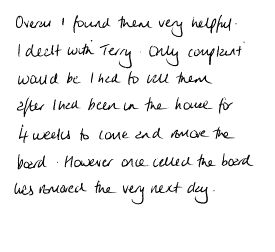 Overall I found them very helpful.
I dealt with Terry. Only complaint
would be I had to call them
after I had been in the house for
4 weeks to come and remove the
board. However once called the board
was removed the very next day.